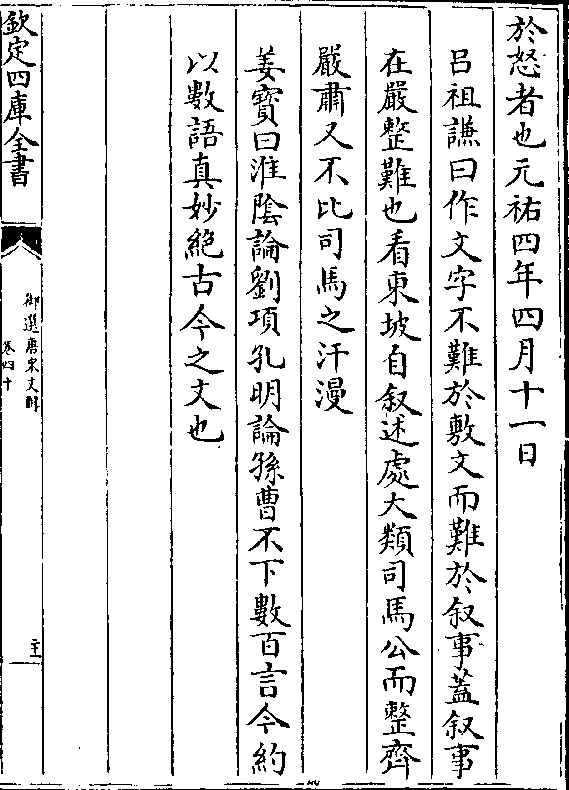 於怒者也元祐四年四月十一日
呂祖謙曰作文字不難於敷文而難於叙事蓋叙事
在嚴整難也看東坡自叙述處大類司馬公而整齊
嚴肅又不比司馬之汗漫
姜寶曰淮陰論劉項孔明論孫曹不下數百言今約
以數語真妙絶古今之文也
欽定四庫全書
御選唐宋文醇
卷四十